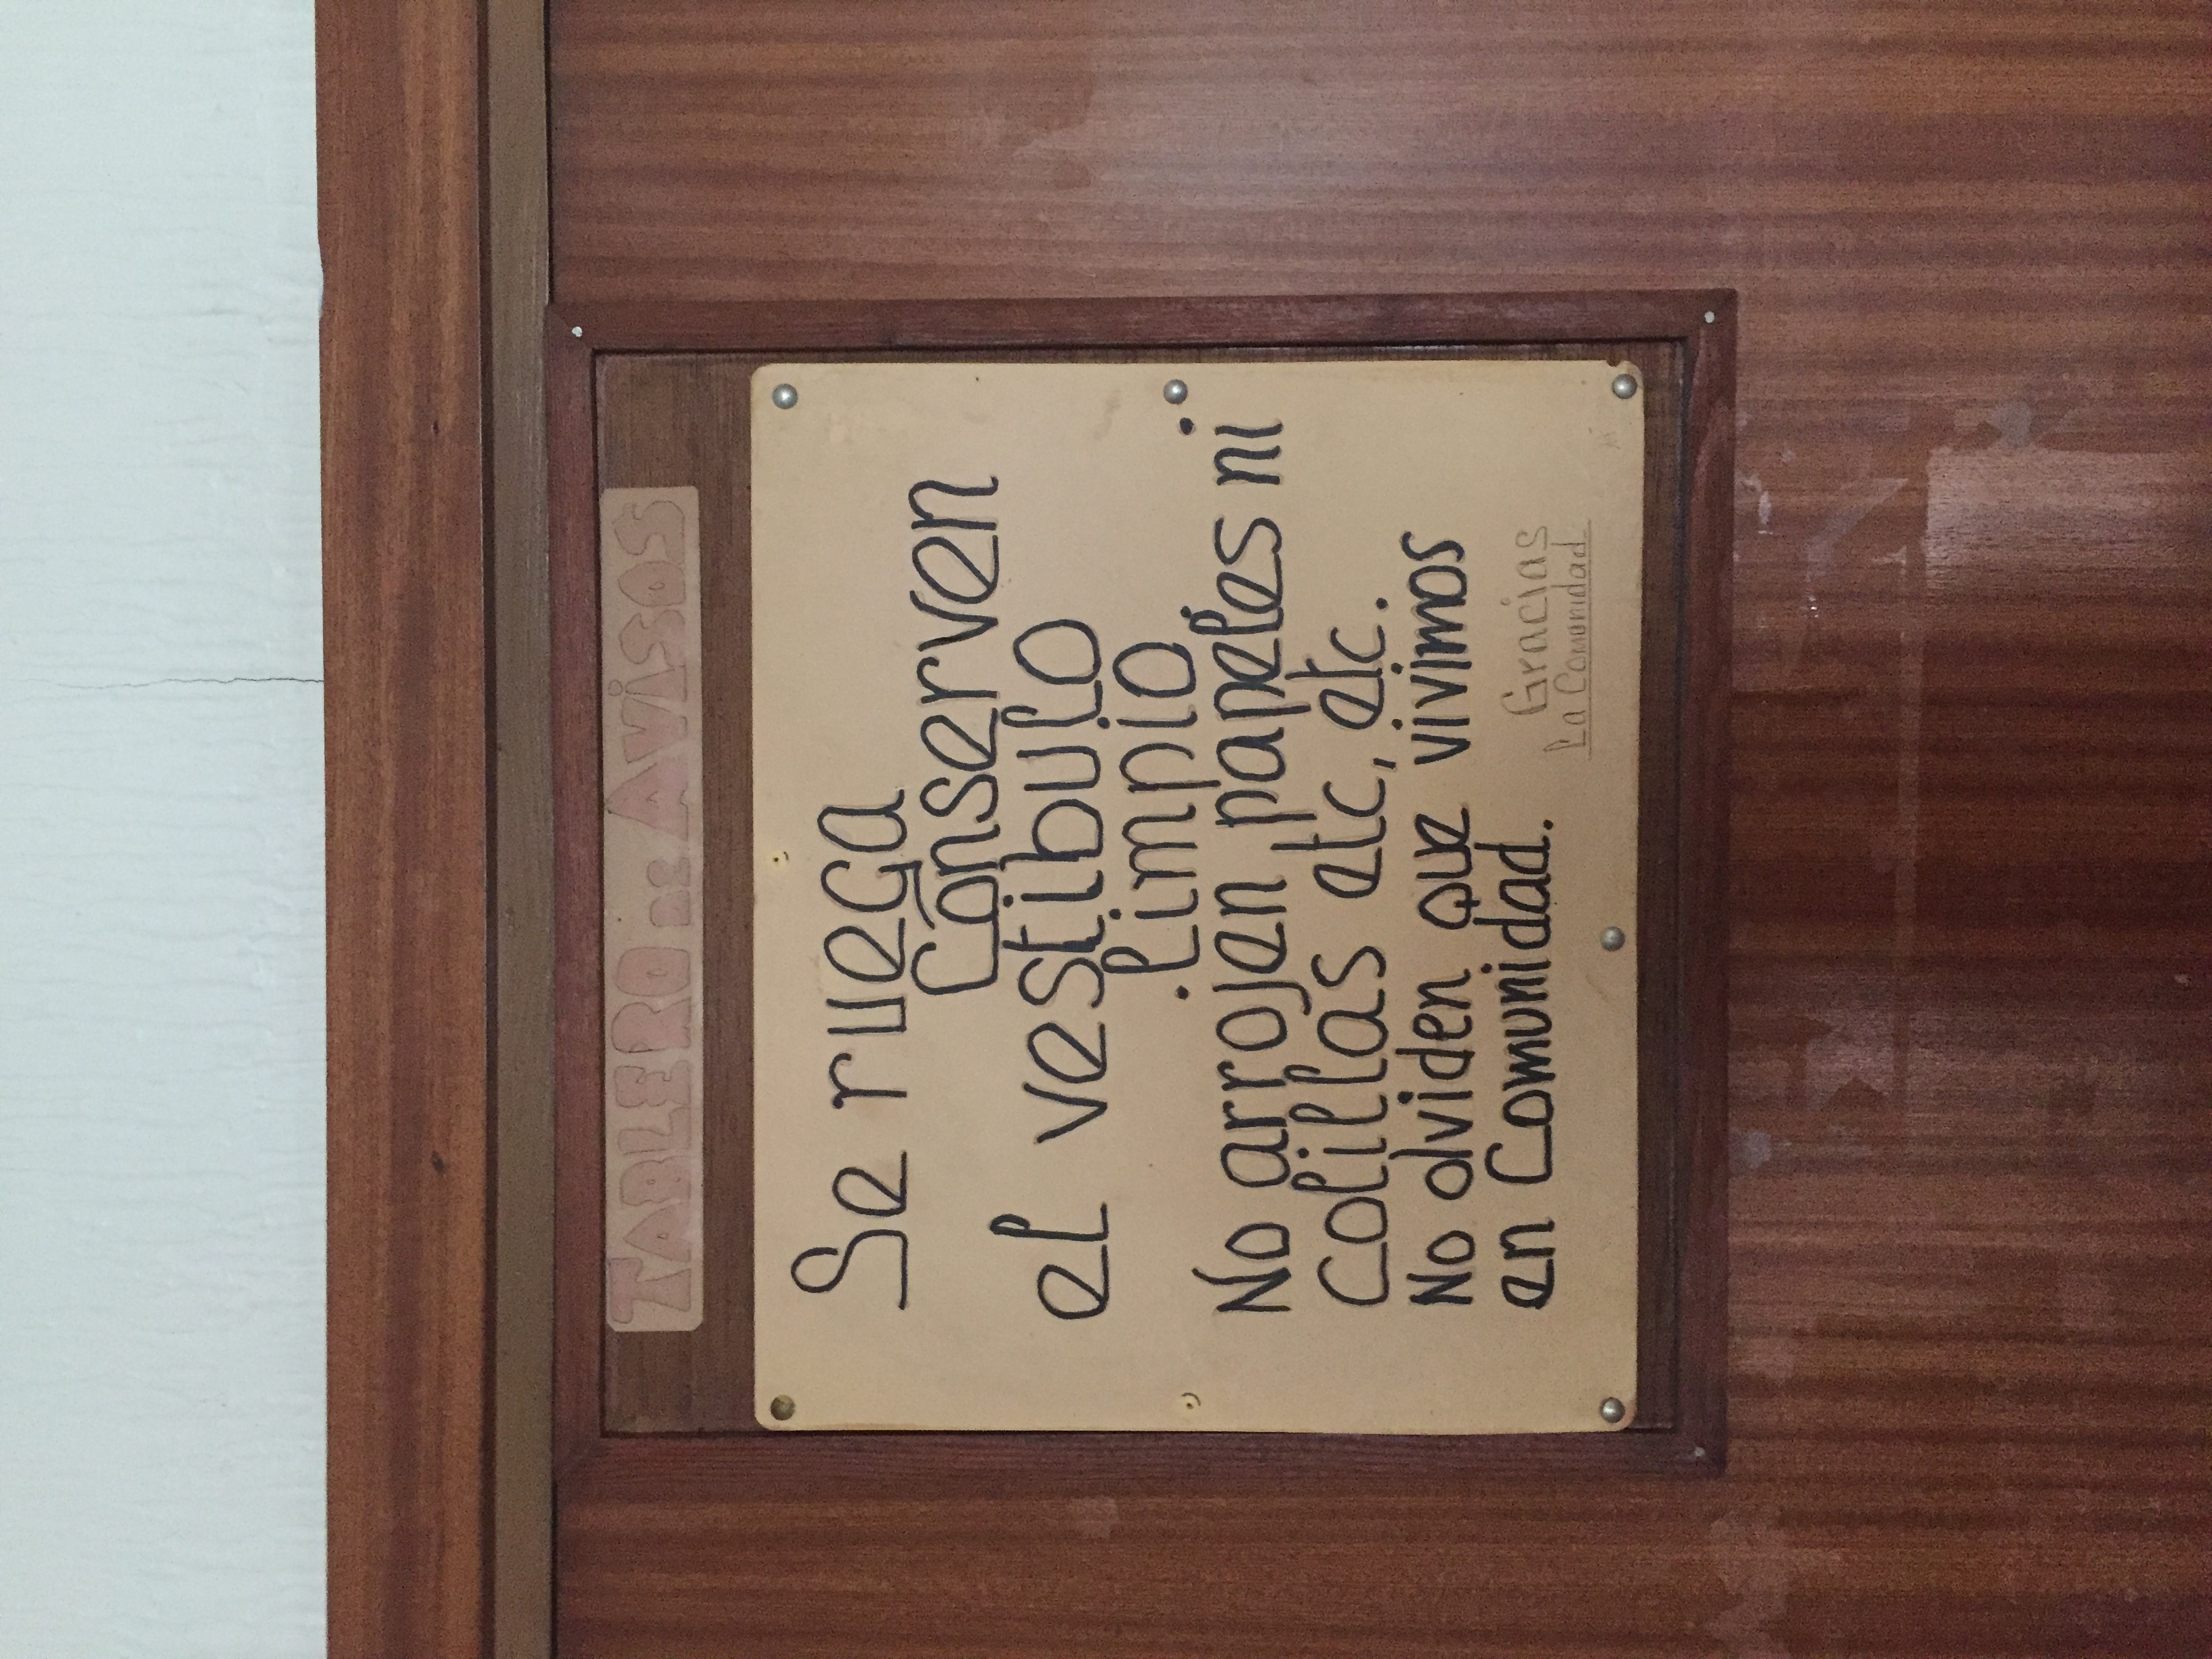 TABLERO DE AVISOS
Se ruega
Conserven
el vestibulo
limpio
No arrojen papeles ni
Colillas etc, etc.
No olviden que vivimos
en Comunidad.
Gracias
La Comunidad